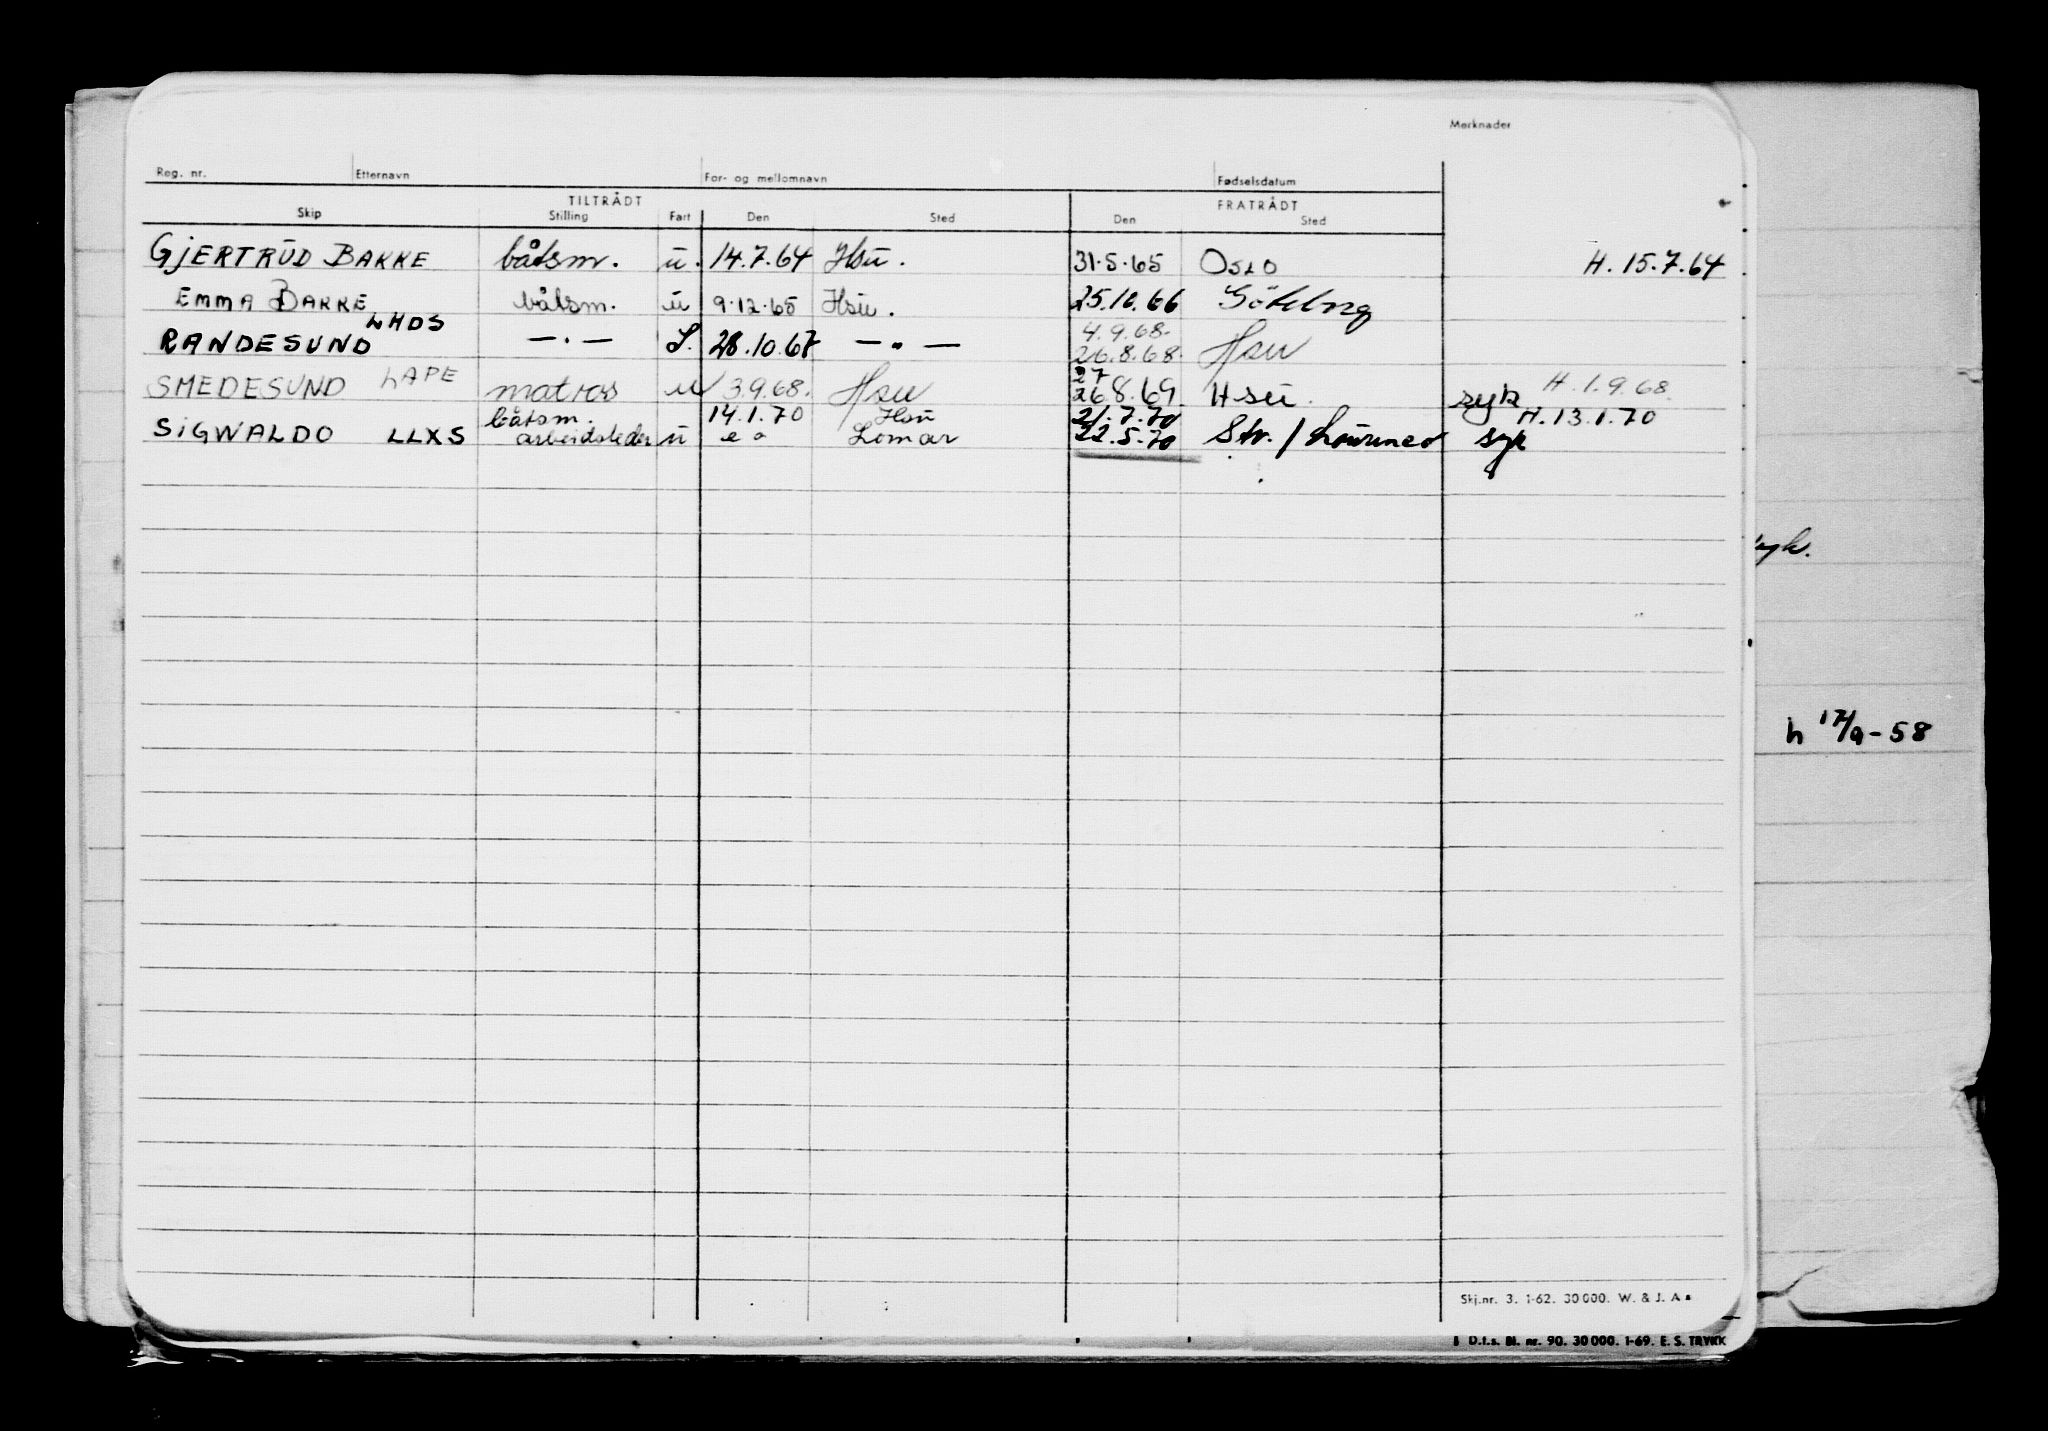 Merknader
Reg. nr. Etternavn For- og mellomnavn Fødselsdatum
TILTRÅDT FRATRÅDT
Skip Stilling Fart Den Sted Den Sted
GJERTRUD BAKKE båtsm. u. 14.7.64 Hsu. 31.5.65 OSLO H. 15.7.64
EMMA BAKKE båtsm. u 9.12.65 Hsu. 25.10.66 Göteborg
LHDS
RANDESUND —.— S. 28.10.67 —"— 4.9.68. 26.8.68. Hsu
SMEDESUND LAPE matros u 3.9.68. Hsu 27 26.8.69. Hsu. syk H. 1.9.68.
båtsm. 14.1.70 Hsu 21.7.70 H. 13.1.70
SIGWALDO LLXS arbeidsleder u Lomar 22.5.70 Str. / syk
syk.
h 17/9-58
Skj.nr. 3. 1-62. 30000. W. & J. A.
D.t.s. Bl. nr. 90. 30000. 1-69. E. S. TRYKK